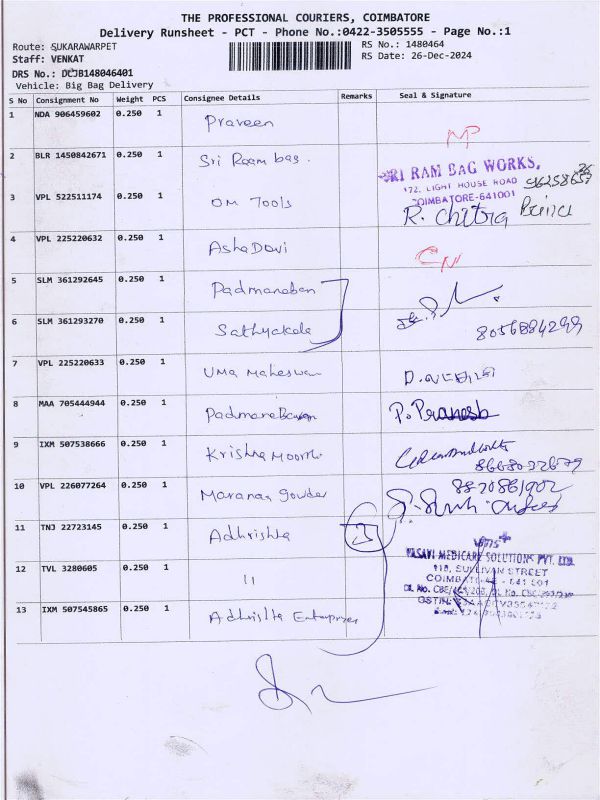 THE PROFESSIONAL COURIERS, COIMBATORE
Delivery Runsheet - PCT - Phone No.:0422-3505555 - Page No.:1
Route: SUKARAWARPET
RS No.: 1480464
Staff: VENKAT
RS Date: 26-Dec-2024
DRS No.: DCJB148046401
Vehicle: Big Bag Delivery
S No Consignment No Weight PCS Consignee Details Remarks Seal & Signature
1 NDA 906459602 0.250 1 Praveen
MP
2 BLR 1450842671 0.250 1 Sri Raam bag.
SRI RAM BAG WORKS,
172, LIGHT HOUSE ROAD
COIMBATORE-641001
3 VPL 522511174 0.250 1 OM Tools R. Chitra
4 VPL 225220632 0.250 1 Asha Davi
CN
5 SLM 361292645 0.250 1 Padmanaban
6 SLM 361293270 0.250 1 Sathyakala 8056884299
7 VPL 225220633 0.250 1 Uma Maheswari
8 MAA 705444944 0.250 1 Padmanabavan P. Pranesh
9 IXM 507538666 0.250 1 Krishna Moorthi
10 VPL 226077264 0.250 1 Maranas Gowder 8870861902
11 TNJ 22723145 0.250 1 Adhrishta
VASAVI MEDICARE SOLUTIONS PVT. LTD.
12 TVL 3280605 0.250 1 11
118, SULLIVAN STREET
COIMBATORE - 641 001
13 IXM 507545865 0.250 1 Adhrishta Enterprises